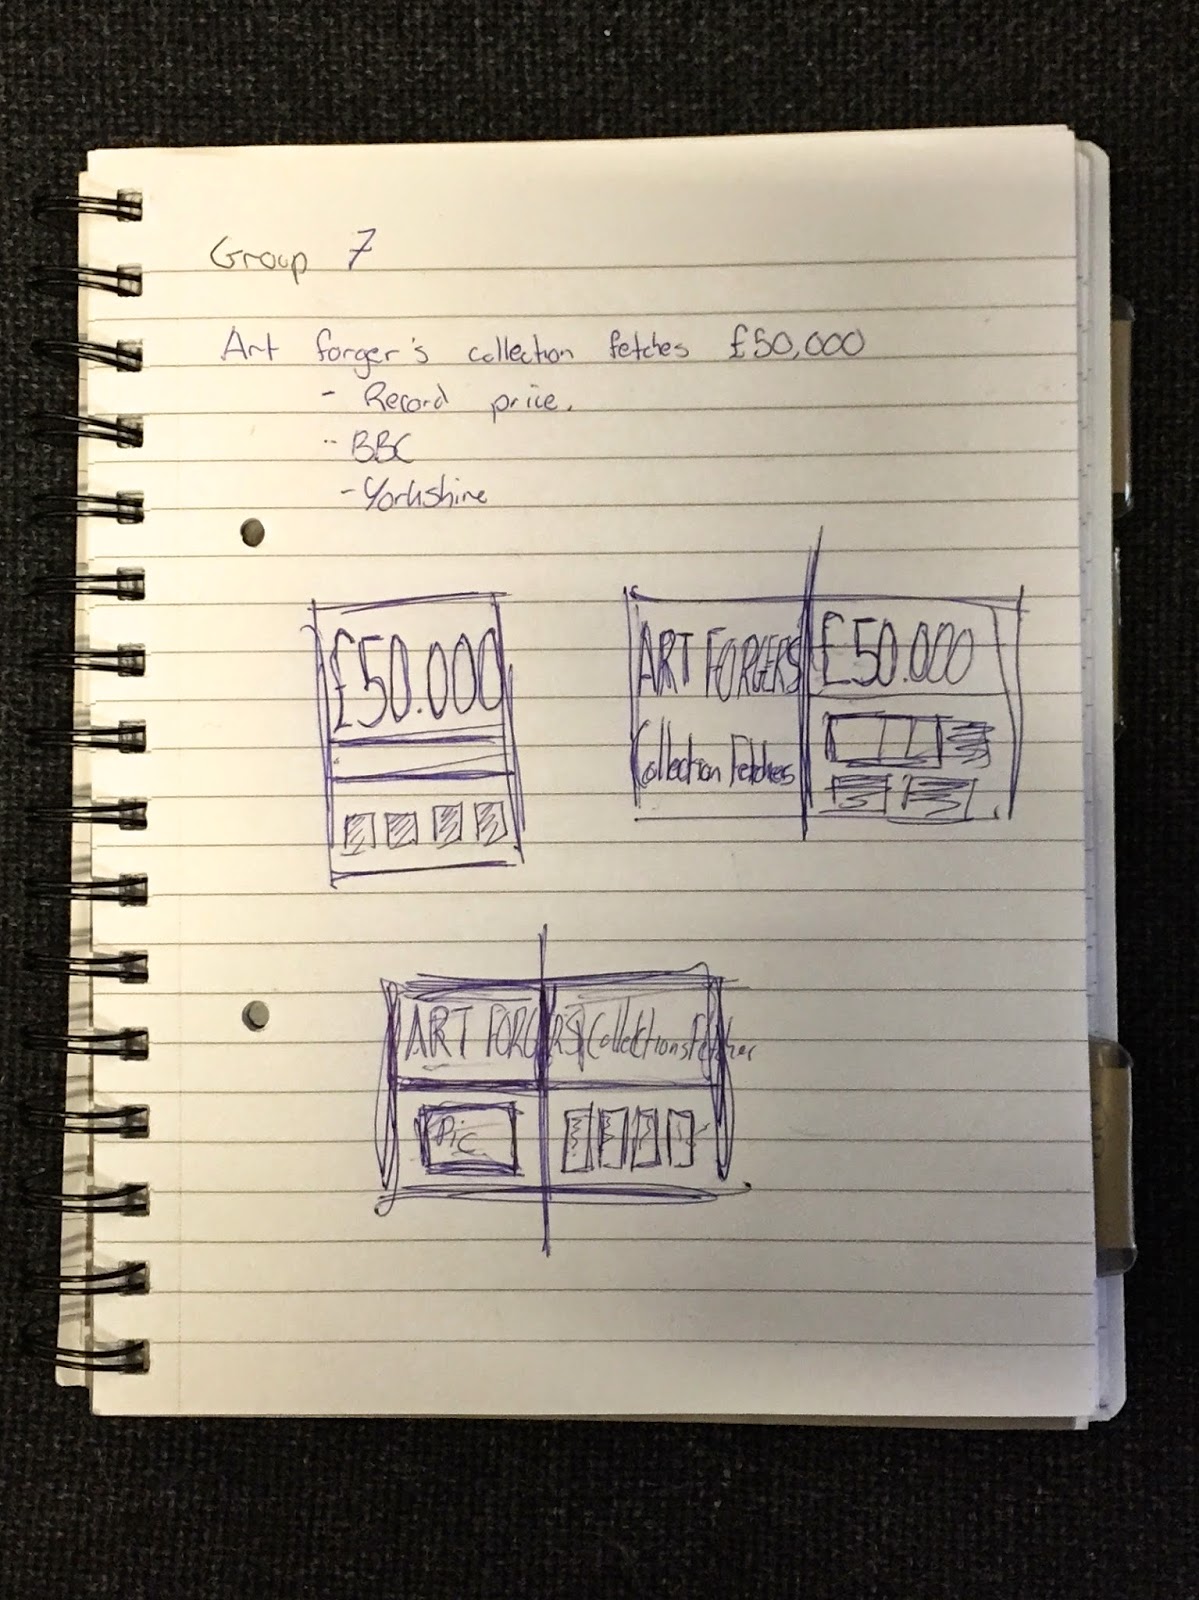 Group 7
Art forger's collection fetches £50,000
- Record price.
- BBC
- Yorkshire
£50.000
ART FORGERS £50.000
Collection Fetches
ART FORGERS Collections Fetches
Pic